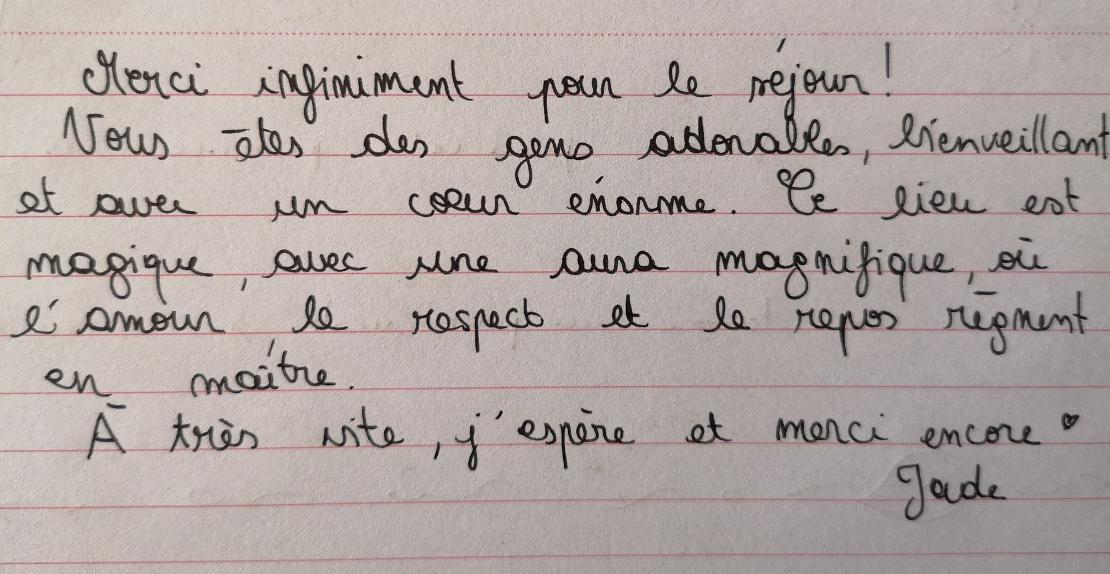 Merci infiniment pour le séjour !
Vous êtes des gens adorables, bienveillant
et avec un coeur énorme. Ce lieu est
magique, avec une aura magnifique, où
l'amour le respect et le repos règnent
en maître.
À très vite, j'espère et merci encore ♥
Jade